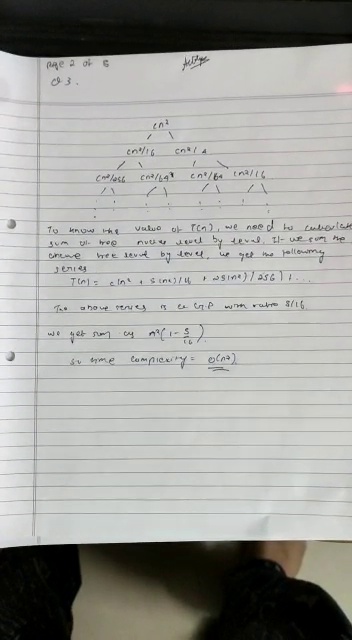 Page 2 of 8
Q 3.
cn²
cn²/16 cn²/4
cn²/256 cn²/64 cn²/64 cn²/16
To know the value of T(n), we need to calculate
sum of tree nodes level by level. If we sum the
above tree level by level, we get the following
series
T(n) = c(n² + 5(n²)/16 + 25(n²)/256) + ...
The above series is a G.P with ratio 5/16
we get sum as n²(1 - 5/16).
so time complexity = O(n²)